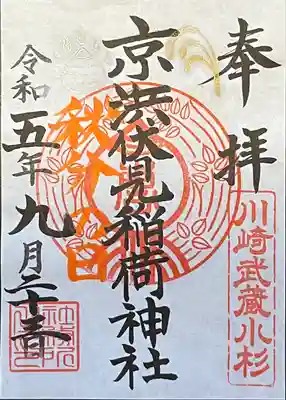 奉拝
川崎武蔵小杉
京浜伏見稲荷神社
秋分の日
令和五年九月二十三日